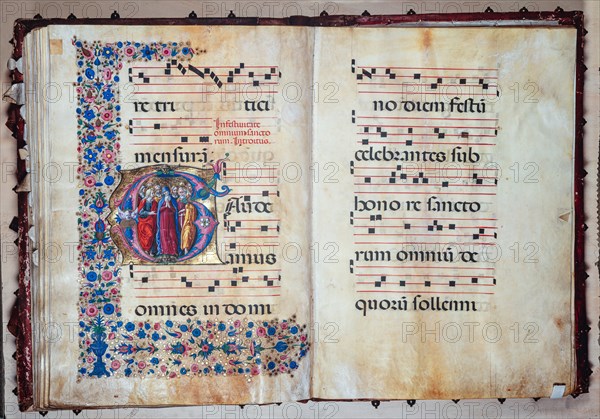 re tri tici
In festivitate
omnium sancto
rum. Introitus.
mensurā
Gaude
amus
omnes in domi
no diem festū
celebrantes sub
hono re sancto
rum omniū de
quorū sollenni